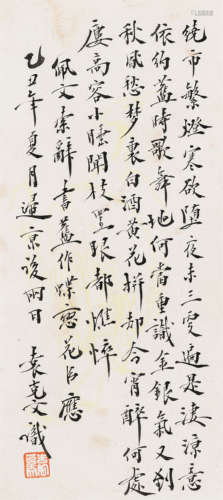 繞市繁燈寒欲墮夜未三更遍是淒涼意
依約舊時歌舞地何嘗重識金銀氣又到
秋風愁夢裏白酒黃花拚却今宵醉何處
屢高容小睡聞枝照眼都憔悴
佩文索辭書舊作蝶戀花以應
乙丑年夏月過京後兩日 袁克文識